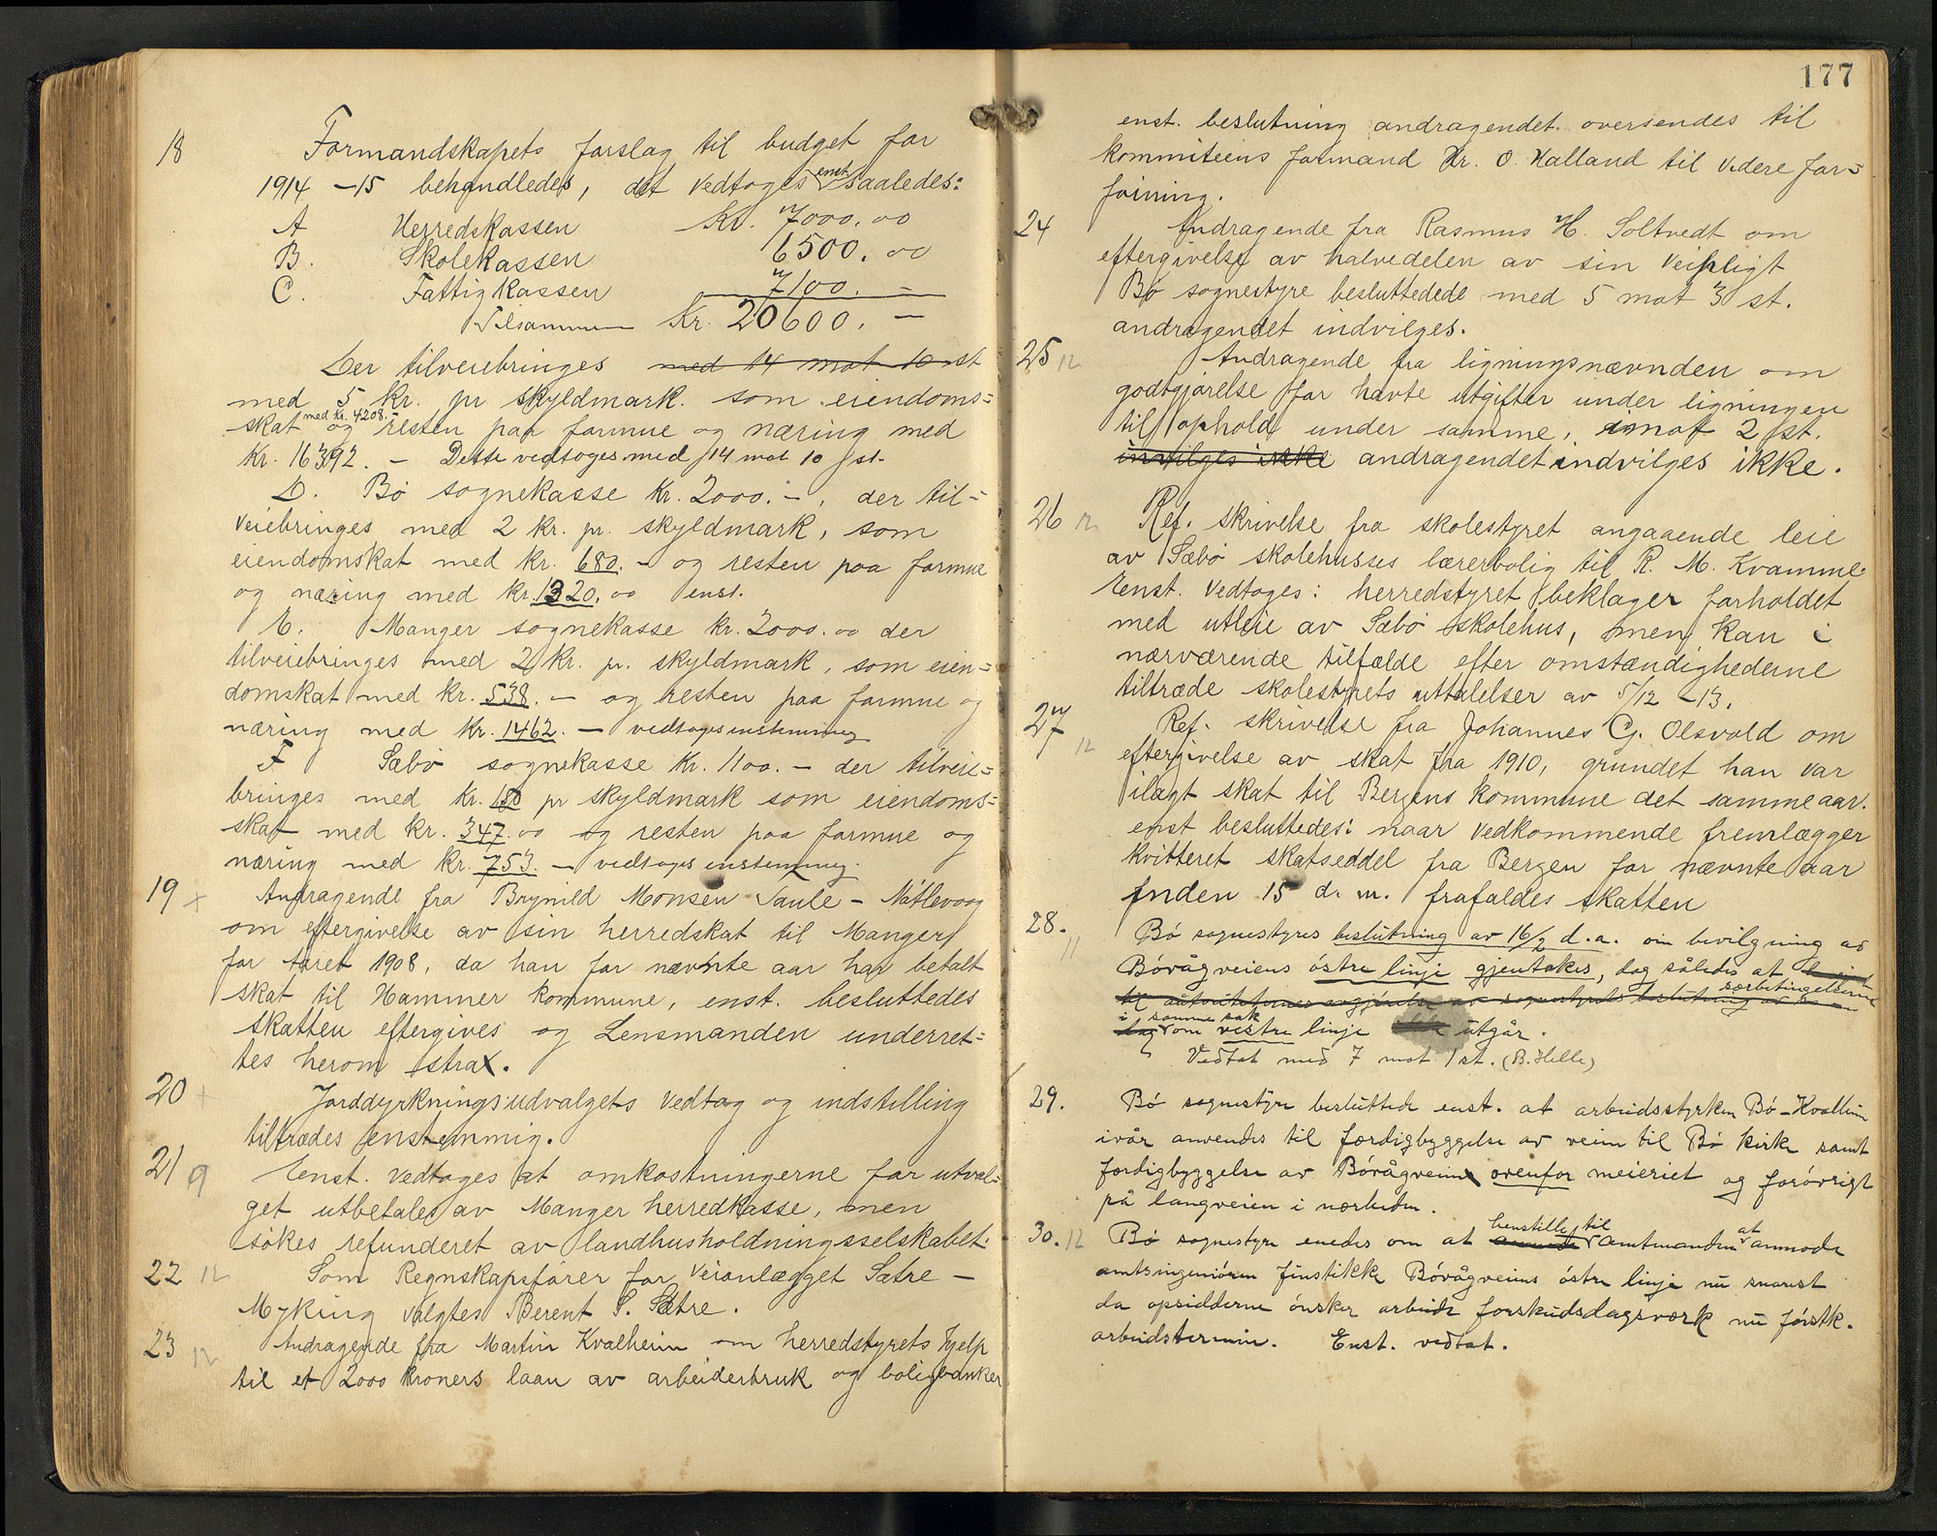 18 Formandskapets forslag til budget for
1914 – 15 behandledes, det vedtoges enst. saaledes:
A Herredskassen Kr. 7000.00
B. Skolekassen 6500.00
C. Fattigkassen 7100. –
Tilsammen Kr. 20600. –
Der tilveiebringes med 14 mot 10 st
med 5 kr. pr skyldmark som eiendoms=
skat med kr. 4208. – og resten paa formue og næring med
kr. 16392. – Dette vedtoges med 14 mot 10 st.
D. Bö sognekasse kr. 2000. –, der til=
veiebringes med 2 kr. pr. skyldmark, som
eiendomskat med kr. 680. – og resten paa formue
og næring med kr. 1320.00 enst.
E. Manger sognekasse kr. 2000.00 der
tilveiebringes med 2 kr. pr. skyldmark, som eien=
domskat med kr. 538. – og resten paa formue og
næring med kr. 1462. – vedtoges enstemmig
F Sæbö sognekasse kr. 1100. – der tilveie=
bringes med kr. 150 pr skyldmark som eiendoms=
skat med kr. 347.00 og resten paa formue og
næring med kr. 753. – vedtoges enstemmig.
19 Andragende fra Brynild Monsen Taule – Nátlevaag
om eftergivelse av sin herredskat til Manger
for Aaret 1908, da han for nævnte aar har betalt
skat til Hammer kommune, enst. besluttedes
skatten eftergives og Lensmanden underret=
tes herom strax.
20 Jorddyrkningsudvalgets vedtag og indstilling
tiltrædes enstemmig.
21 9 Enst. vedtoges at omkostningerne for utval=
get utbetales av Manger herredkasse, men
sökes refunderet av landhusholdningsselskabet.
22 12 Som Regnskapsförer for veianlægget Sætre –
Myking valgtes Berent S. Sætre.
23 12 Andragende fra Martin Kvalheim om herredstyrets hjelp
til et 2000 kroners laan av arbeiderbruk og boligbanken
177
enst. beslutning andragendet oversendes til
kommiteens formand Hr. O. Halland til videre for=
föining.
24 Andragende fra Rasmus H. Soltvedt om
eftergivelse av halvedelen av sin veipligt
Bö sognestyre besluttedede med 5 mot 3 st.
andragendet indvilges.
25 12 Andragende fra ligningsnævnden om
godtgjörelse for havte utgifter under ligningen
til ophold under samme, imot 2 st.
invilges ikke andragendet indvilges ikke.
26 12 Ref. skrivelse fra skolestyret angaaende leie
av Sæbö skolehusses lærerbolig til R. M. Kvamme
Enst. vedtoges: herredstyret beklager forholdet
med utleie av Sæbö skolehus, men kan i
nærværende tilfælde efter omstændighederne
tiltræde skolestyrets uttalelser av 5/12 –13.
27 12 Ref. skrivelse fra Johannes C. Olsvold om
eftergivelse av skat fra 1910, grundet han var
ilagt skat til Bergens kommune det samme aar.
enst besluttedes: naar vedkommende fremlægger
kvitteret skatseddel fra Bergen for nævnte aar
inden 15 d. m. frafaldes skatten
28. 11 Bö sognestyres beslutning av 16/2 d.a. om bevilgning av
Bövågveiens östre linje gjentakes, dog således at
særbetingelserne
i samme sak om vestre linje utgår.
Vedtat med 7 mot 1 st. (B. Helle)
29. Bö sognestyre besluttede enst. at arbeidsstyrken Bö – Kvalheim
ivår anvendes til færdigbyggelse av veien til Bö kirke samt
færdigbyggelse av Bövågveien ovenfor meieriet og forövrigt
på langveien i nærheden.
30. 12 Bö sognestyre enedes om at henstille til amtmanden at anmode
amtsingeniören finstikke Bövågveiens östre linje nu snarest
da opsidderne önsker arbeide forskudsdagsværk nu förstk.
arbeidstermin. Enst. vedtat.